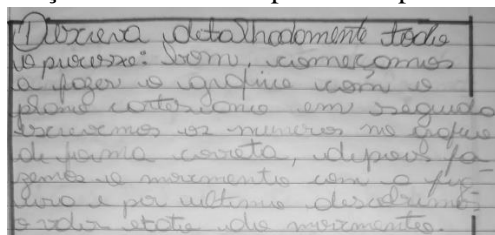 ① Descreva detalhadamente todo
o processo: bom, começamos
a fazer o grafico com o
plano cartesiano em seguida
escrevemos os numeros no grafico
de forma correta, depois fa
zemos o movimento com o
e por ultimo descobrimos
o valor exato do movimento.